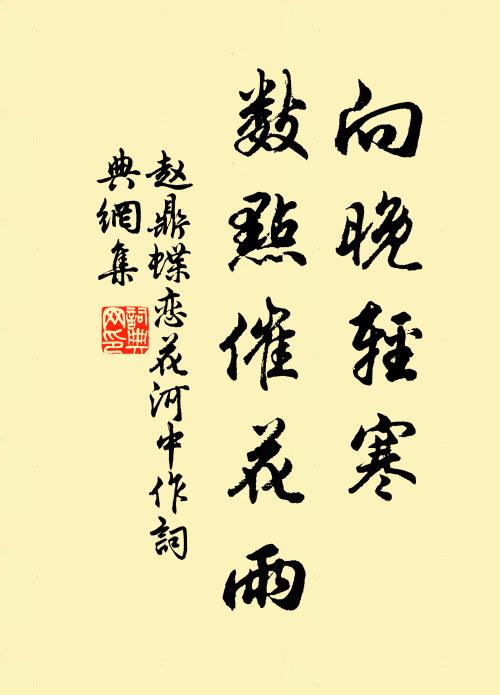 向晚輕寒
數點催花雨
赵鼎蝶恋花河中作詞
典網集
詞典
网印